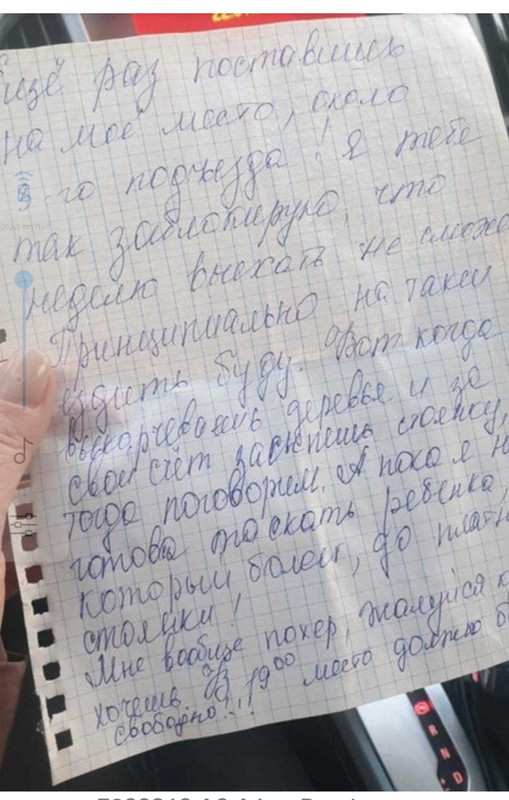 Ещё раз поставишь
на моё место, около
го подъезда! Я тебе
так заблокирую, что
неделю выехать не смож
Принципиально на такси
ездить буду. Вот когда
выкарчеваешь деревья и за
свой счёт засыпешь стоянку,
тогда поговорим. А пока я н
готова таскать ребёнка,
который болеет, до платн
стоянки!
Мне вообще похер, жалуйся к
хочешь. В 19⁰⁰ место должно б
свободно!!!
R
N
D